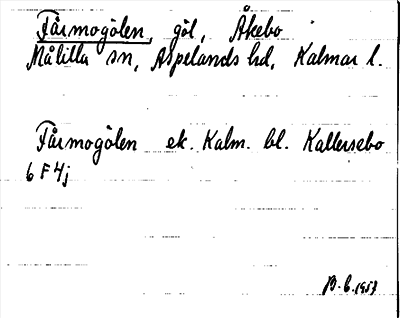 Fårmogölen, göl, Åkebo
Målilla sn, Aspelands hd, Kalmar l.
Fårmogölen ek. Kalm. bl. Kallersebo
6 F 4j
B.C. 1957